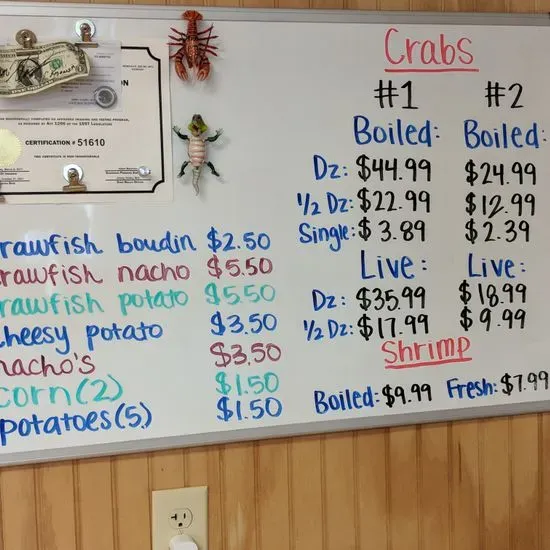 ON
AS REQUIRED BY ACT 1206 OF THE 1997 LEGISLATURE
CERTIFICATION # 51610
THIS CERTIFICATION IS NON-TRANSFERABLE
rawfish boudin $2.50
rawfish nacho $5.50
rawfish potato $5.50
cheesy potato $3.50
nacho's $3.50
corn (2) $1.50
potatoes (5) $1.50
Crabs
#1 #2
Boiled: Boiled:
Dz: $44.99 $24.99
1/2 Dz: $22.99 $12.99
Single: $3.89 $2.39
Live: Live:
Dz: $35.99 $18.99
1/2 Dz: $17.99 $9.99
Shrimp
Boiled: $9.99 Fresh: $7.99